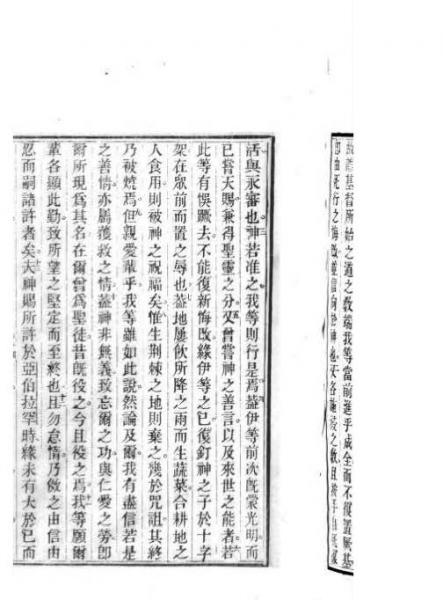 基督所始之道之教端我等當前進乎成全而不復置厥基
由死行之悔改並信向於神也
活與永審也神若准之我等則行是焉蓋伊等前次既蒙光明而
已嘗天賜兼得聖靈之分又曾嘗神之善言以及來世之能者若
此等有悞蹶去不能復新悔改緣伊等之已復釘神之子於十字
架在眾前而置之辱也蓋地屢飲所降之雨而生蔬菜合耕地之
人食用則被神之祝福矣惟生荊棘之地則棄之幾於咒詛其終
乃被燒焉但親愛輩乎我等雖如此說然論及爾我有盡信若是
之善情亦屬獲救之情蓋神非無義致忘爾之功與仁愛之勞即
爾所現爲其名在爾曾爲聖徒昔既役之今且役之焉我等願爾
輩各顯此勤致所望之堅定而至終也且勿怠惰乃倣之由信由
忍而嗣諸許者矣夫神賜所許於亞伯拉罕時緣未有大於已而